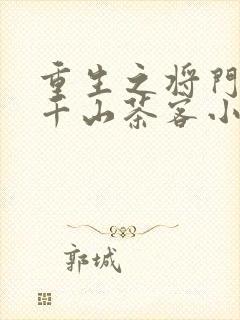 重生之将门
千山茶客小
郭城